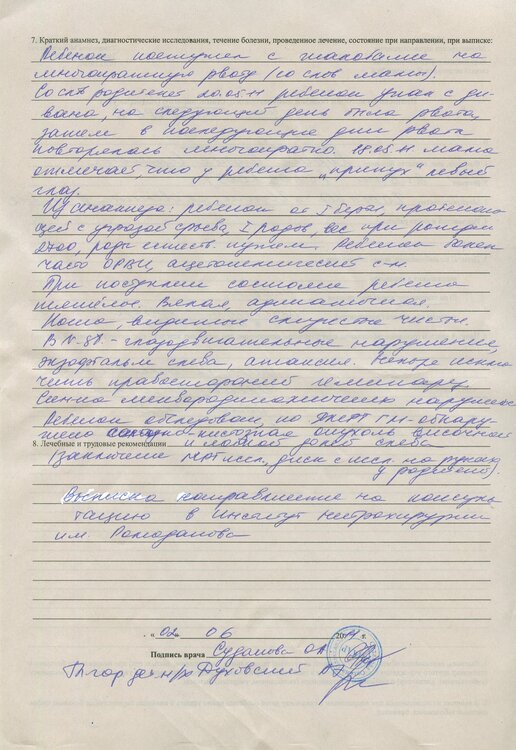 7. Краткий анамнез, диагностические исследования, течение болезни, проведенное лечение, состояние при направлении, при выписке:
Ребенок поступил с жалобами на
многократную рвоту (со слов мамы).
Со слов родителей 20.05.11 ребенок упал с ди-
вана, на следующий день была рвота,
затем в последующие дни рвота
повторялась многократно. мама
отмечает, что у ребенка "припух" левый
глаз.
Из анамнеза: ребенок от I берем, протекаю
щей с угрозой срыва, I родов, вес при рожден
2700, роды естеств. путем. Ребенок болел
часто ОРВИ, ацетонемический с-м
При поступлении состояние ребенка
тяжелое. Вялая, адинамичная.
Кожа, видимые слизистые чисты.
В N-SR - глазодвигательные нарушения,
экзофтальм слева, атаксия. Нельзя исклю
чить правосторонний гемипарез.
Ребенок обследован, по ЯМРТ ГМ - обнару
жено кистозная опухоль височной
8. Лечебные и трудовые рекомендации и лобной долей слева
(заключение МРТ иссл. диск с иссл. на руках
у родителей).
Выписка направление на консуль
тацию в Институт нейрохирургии
им. Ромоданова
«02» 06 20 г.
Подпись врача